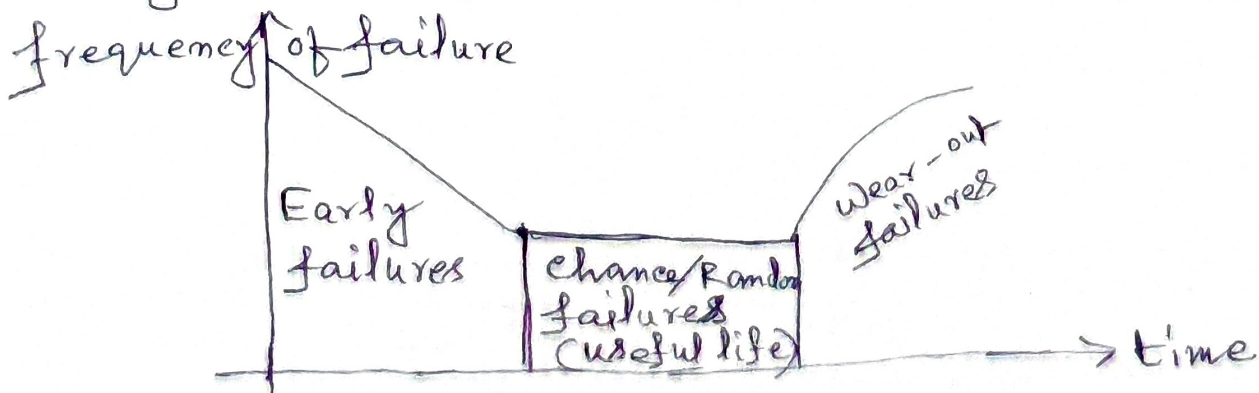 frequency of failure
Early
failures
Chance/Random
failures
(useful life)
Wear-out
failures
time